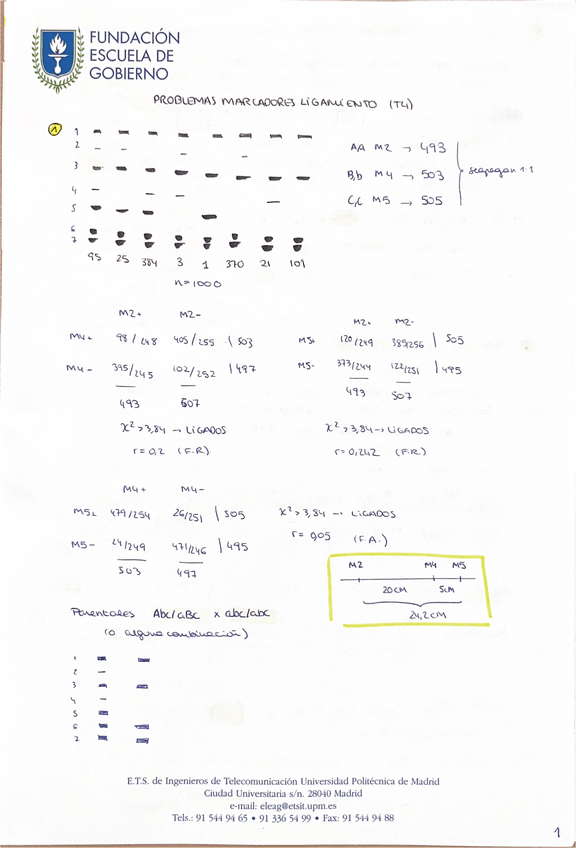 FUNDACIÓN
ESCUELA DE
GOBIERNO
PROBLEMAS MARCADORES LIGAMIENTO (T4)
1
1
2
3
4
5
6
7
95 25 384 3 1 370 21 101
n=1000
A,a M2 → 493
B,b M4 → 503
C,c M5 → 505
segregan 1:1
M2+ M2-
M4+ 98/248 405/255 | 503
M4- 395/245 102/252 | 497
493 507
χ² > 3,84 → LIGADOS
r = 0,2 (F.R.)
M2+ M2-
M5+ 120/249 385/256 | 505
M5- 373/244 122/251 | 495
493 507
χ² > 3,84 → LIGADOS
r = 0,242 (F.R.)
M4+ M4-
M5+ 479/254 26/251 | 505
M5- 24/249 471/246 | 495
503 497
χ² > 3,84 → LIGADOS
r = 0,05 (F.A.)
M2 M4 M5
20CM 5CM
24,2CM
Parentales Abc/aBC x abc/abc
(o alguna combinación)
1
2
3
4
5
6
7
E.T.S. de Ingenieros de Telecomunicación Universidad Politécnica de Madrid
Ciudad Universitaria s/n. 28040 Madrid
e-mail: eleag@etsit.upm.es
Tels.: 91 544 94 65 • 91 336 54 99 • Fax: 91 544 94 88
1